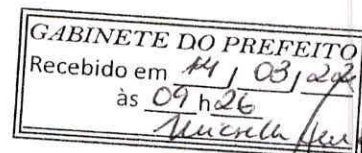 GABINETE DO PREFEITO
Recebido em 14 / 03 /
às 09 h 26